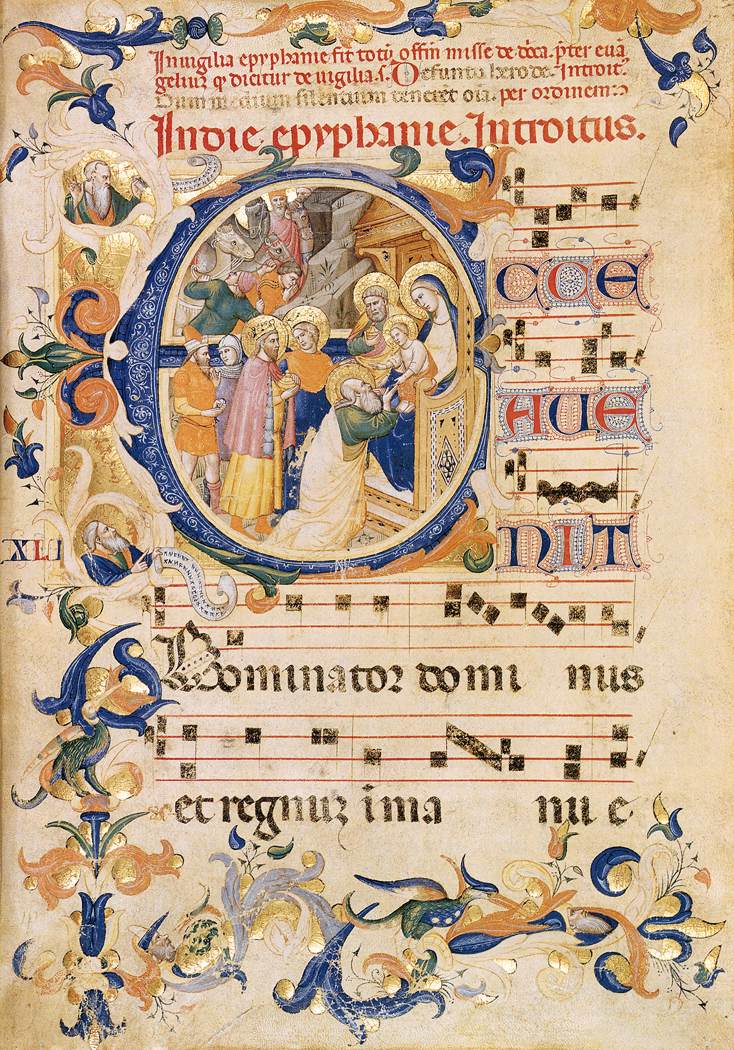 In uigilia epyphanie fit totũ offiñ misse de dñca p̃ter euã
geliuʒ qͥ dicitur de uigilia.s. Defunto herode. Introit᷒.
Dum medium silencium teneret oı̃a. per ordinem:
In die epyphanie. Introitus.
E CCE
AUE
NIT
XLI
Dominator domi nus
et regnuʒ i ma nu e